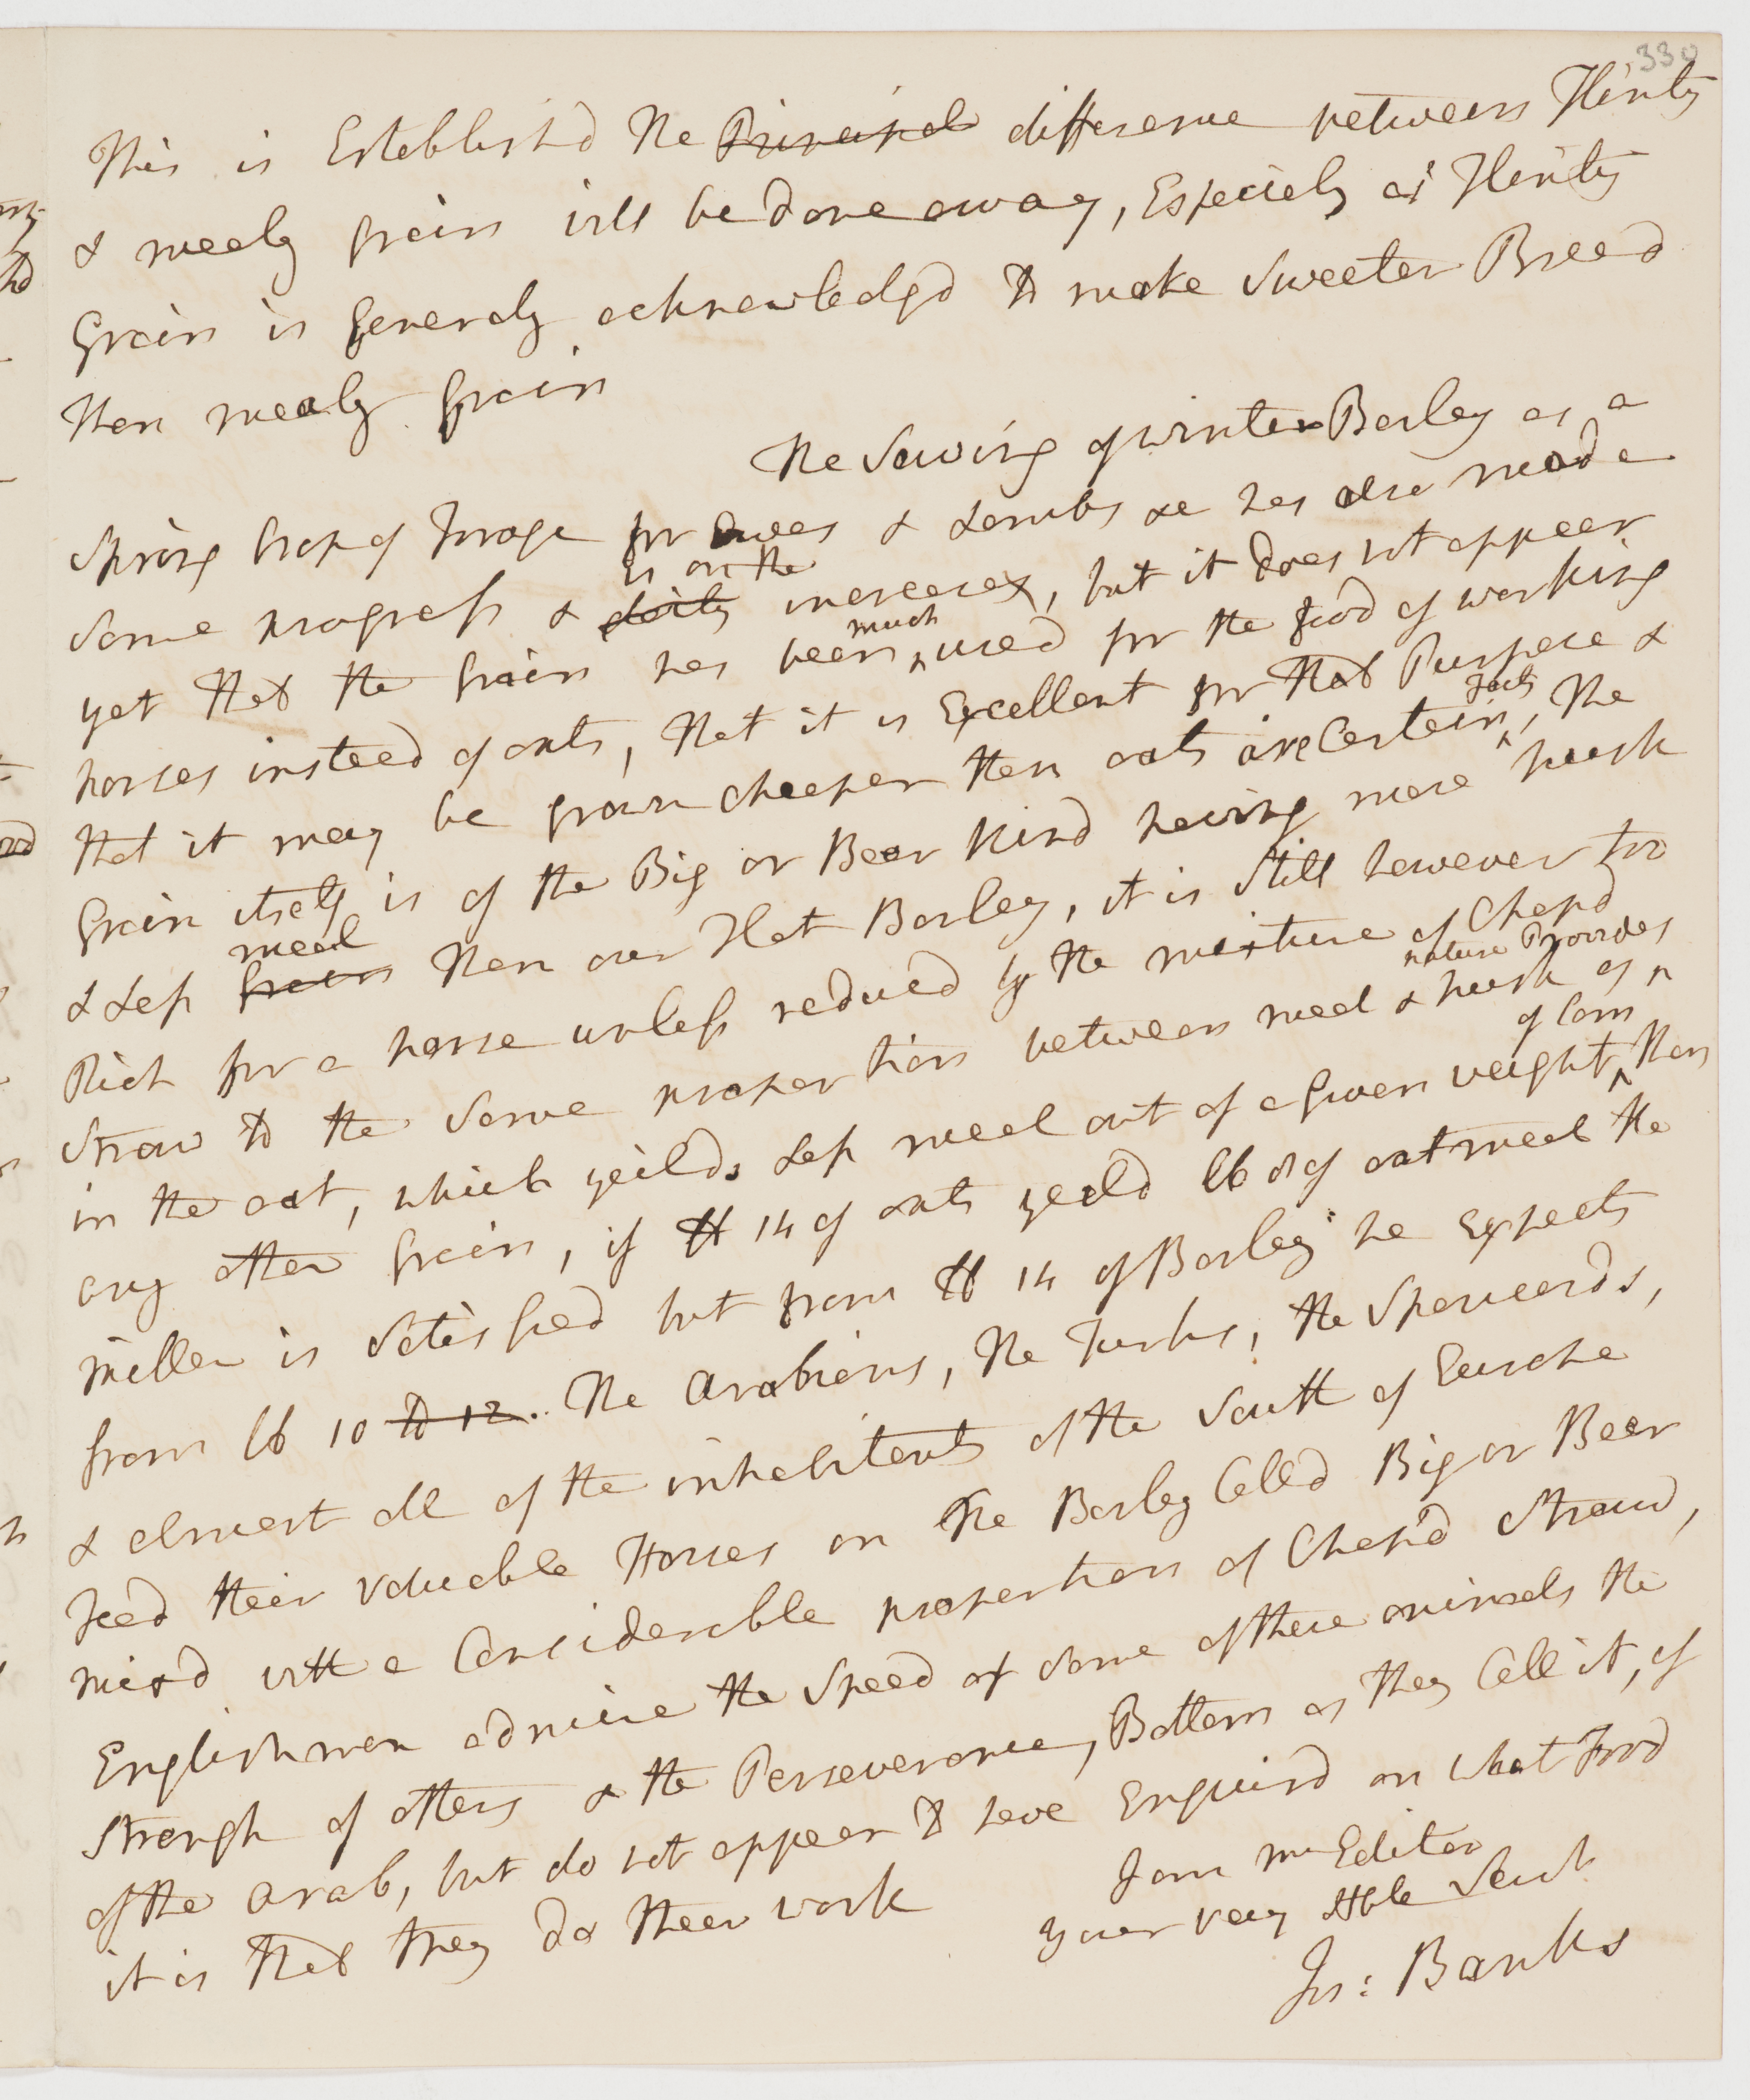 330
This is Establishd The Principal difference between Flinty
& mealy grain will be done away, Especialy as Flinty
Grain is generaly acknowledgd to make Sweeter Bread
then mealy Grain
The Sowing of winter Barley as a
Spring Crop of Forage for Ewes & Lambs &c has also made
is on the
some progress & daily increase, but it does not appear
much
yet that the Grain has been ^ used for the food of working
horses insteed of oats, that it is Excellent for that Purpose &
facts
that it may be grown cheeper then oats are Certain ^, The
Grain itself is of the Big or Bear kind having more husk
meal
& Less Grain then our Flat Barley, it is Still however too
Rich for a horse unless reduced by the mixture of Chopd
nature Provides
Straw to the same proportion between meal & husk as ^
of Corn
in the oat, which yeilds Less meal out of a given weight ^ than
any other Grain, if lb 14 of oats yeild lb 8 of oatmeal the
miller is satisfied but from lb 14 of Barley he Expects
from lb 10 to 12. The Arabians, The Turks, the Spaneards,
& almost all of the inhabitants of the South of Europe
feed their valueable Horses on the Barley Calld Big or Bear
mixd with a Considerable proportion of Chop'd Straw,
Englishmen admire the Speed of some of these animals the
strengh of others & the Perseverance, Bottom as they Call it, of
of the Arab, but do not appear to have Enquird on what Food
it is that they do their work
I am Mr Editor
your very Hble Servt
Jos: Banks